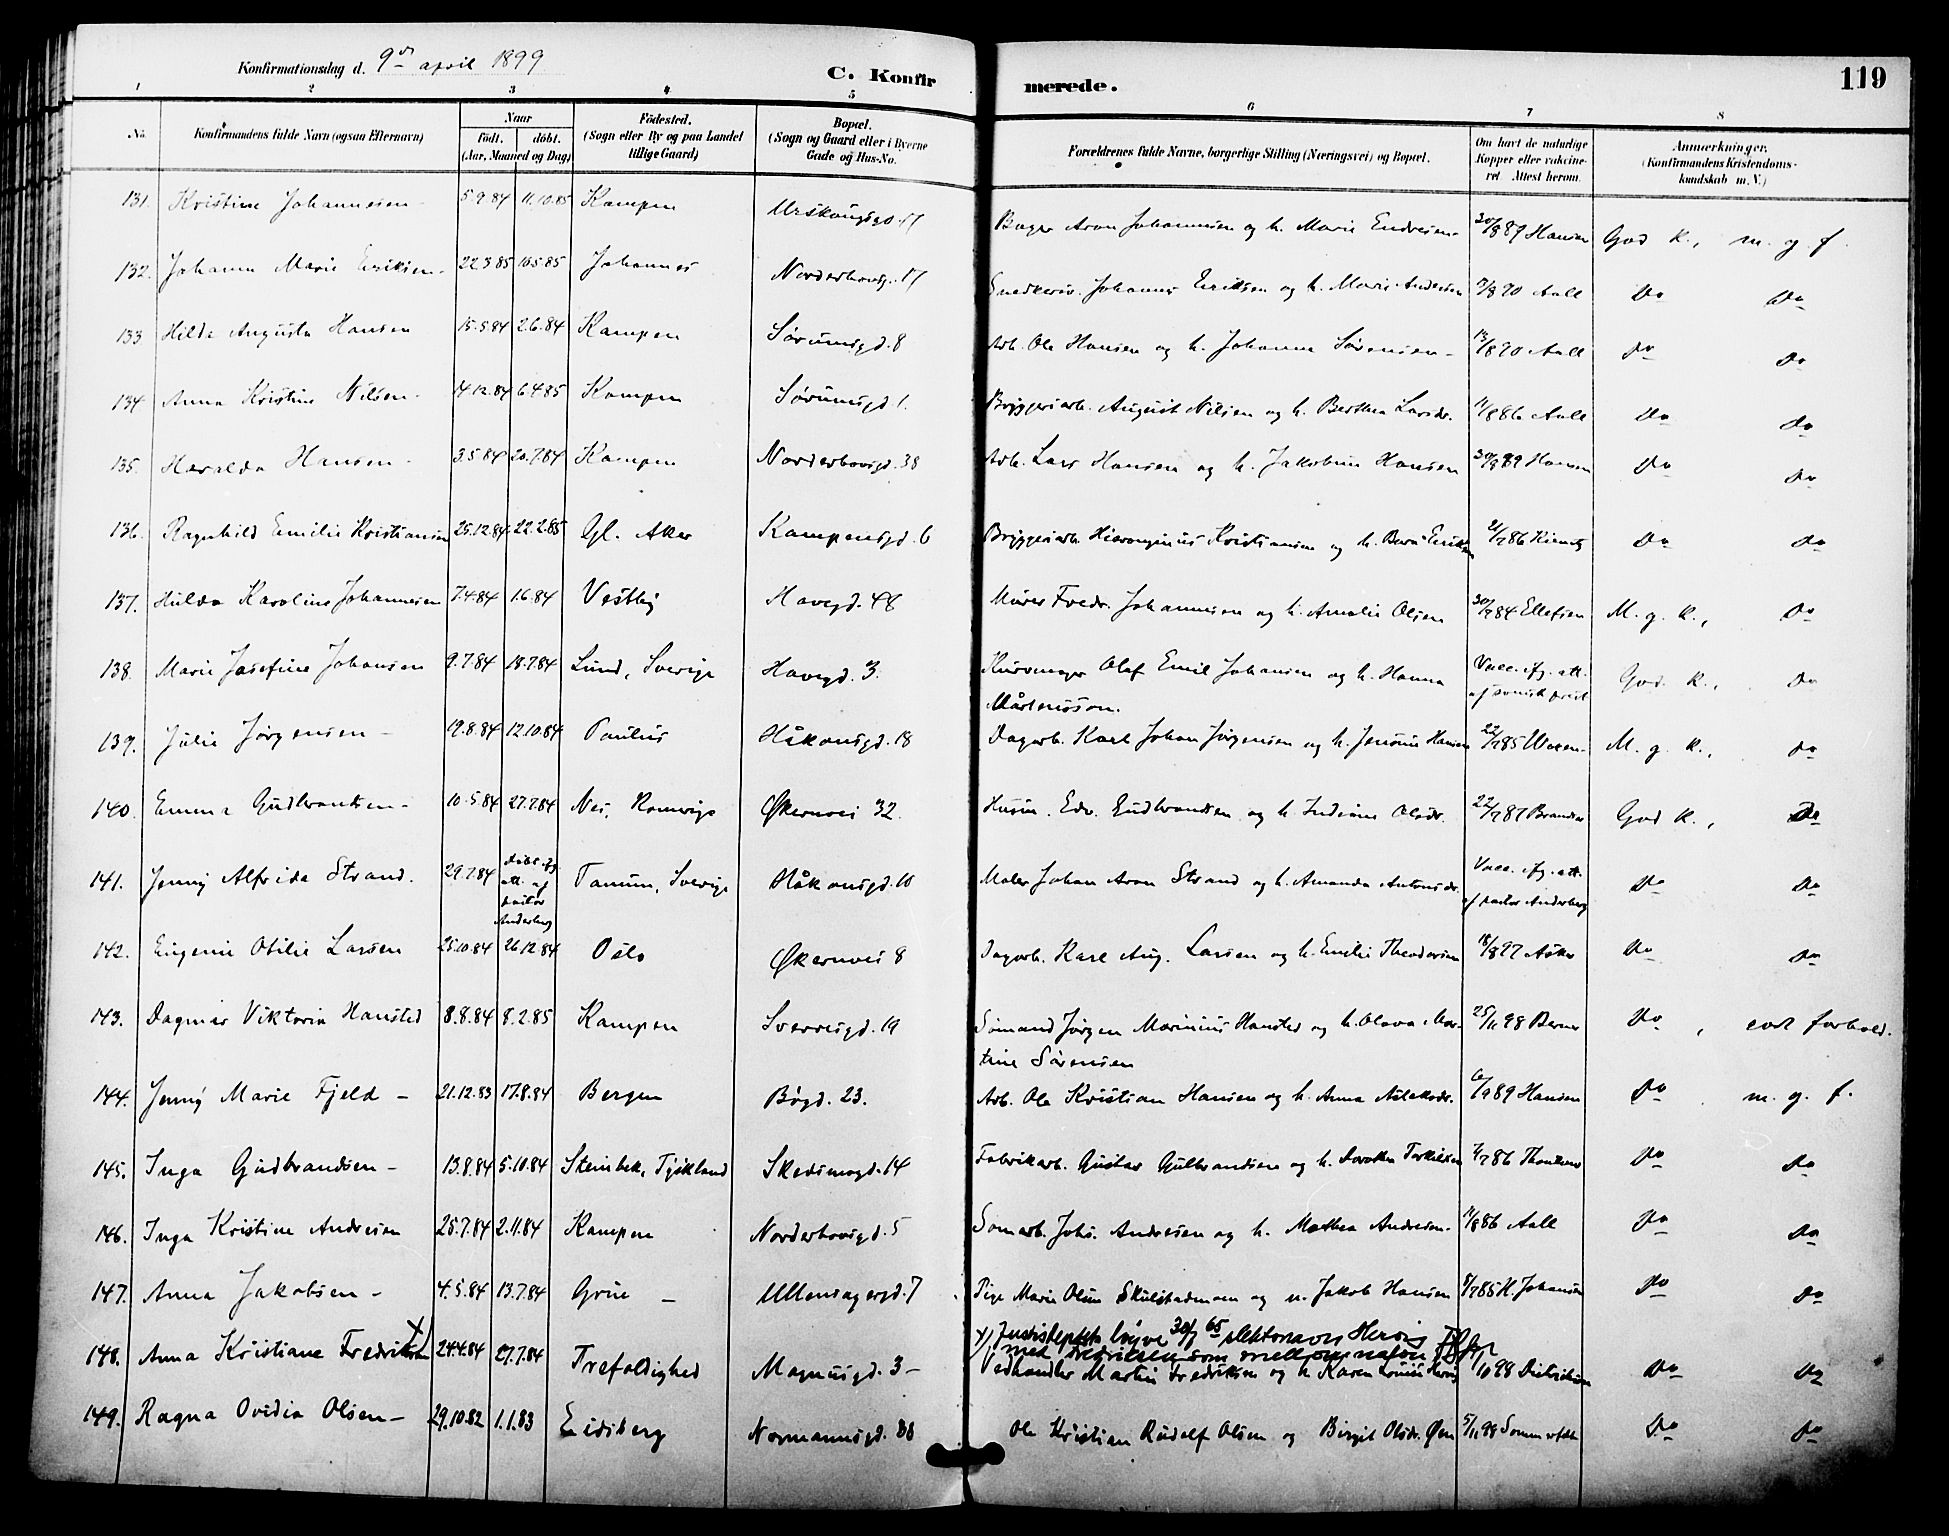 Konfirmationsdag d. 9de april 1899
C. Konfirmerede.
119
1 2 3 4 5 6 7 8
No. Konfirmandens fulde Navn (ogsaa Efternavn) Naar født. døbt. (Aar, Maaned og Dag) Fødested. (Sogn eller By og paa Landet tillige Gaard) Bopæl. (Sogn og Gaard eller i Byerne Gade og Hus-No. Forældrenes fulde Navne, borgerlige Stilling (Næringsvei) og Bopæl. Om havt de naturlige Kopper eller vakcineret Attest herom. Anmærkninger. (Konfirmandens Kristendomskundskab m. V.)
131. Kristine Johannesen - 5.9.84 11.10.85 Kampen Urskougsgd. 17 Bager Aron Johannesen og h. Marie Endresen - 30/8 87 Hansen God k., m. g. f.
132. Johanne Marie Eriksen - 22.3.85 10.5.85 Johannes Norderhovsg. 17 Snedkersv. Johannes Eriksen og h. Marie Andersen 7/8 90 Aall Do Do
133 Hilda Augusta Hansen 15.5.84 2.6.84 Kampen Sørumsgd. 8 Arb. Ole Hansen og h. Johanne Sørensen - 13/8 90 Aall Do Do
134 Anna Kristine Nilsen - 14.12.84 6.4.85 Kampen Sørumsgd. 1. Bryggeriarb. August Nilsen og h. Berthea Larsdr. 11/8 86 Aall Do Do
135. Haralda Hansen - 3.5.84 20.7.84 Kampen Norderhovsgd. 38 Arb. Lars Hansen og h. Jakobine Hansen 30/9 89 Hansen Do Do
136. Ragnhild Emilie Kristiansen 25.12.84 22.2.85 Gl. Aker Kampensgd. 6 Bryggeriarb. Hieronymus Kristiansen og h. Berte Eriksen Do Do
137. Hulda Karoline Johannesen 7.4.84 1.6.84 Vestby Havegd. 48 Murer Fredr. Johannesen og h. Amalie Olsen 30/9 84 Ellefsen M. g. k., Do
138. Marie Josefine Johansen 9.7.84 18.7.84 Lund, Sverige Havegd. 3. Kurvmager Olaf Emil Johansen og h. Hanna Mårtensson. Vacc. ifg. att. af svensk præst God. k., Do
139. Julie Jørgensen - 19.8.84 12.10.84 Paulus Håkonsgd. 18 Dagarb. Karl Johan Jørgensen og h. Jensine Hansen 22/7 85 M. g. k., Do
140. Emma Gudbrandsen - 10.5.84 27.7.84 Nes, Romerige Økernvei 32. Husm. Edv. Gudbrandsen og h. Indiane Olsdr. 22/7 87 God k., Do
141. Jenny Alfrida Strand. 29.7.84 døbt ifg. att. af pastor Anderberg Tanum, Sverige Håkonsgd. 10 Maler Johan Aron Strand og h. Amanda Antonsdr. Vacc. ifg. att. af pastor Anderberg Do Do
142. Eugenie Otilie Larsen 25.10.84 26.12.84 Oslo Økernvei 8 Dagarb. Karl Aug. Larsen og h. Emilie Theodorsen 18/8 97 Do Do
143. Dagmar Viktoria Hansted 8.8.84 8.2.85 Kampen Sverresgd. 19 Sømand Jørgen Marinius Hansted og h. Olava Martine Sørensen 25/11 98 Berner Do, forhold.
144. Jenny Marie Fjeld - 21.12.83 17.8.84 Bergen Bøgd. 23. Arb. Ole Kristian Hansen og h. Anna Aslaksdr. 6/9 89 Hansen Do m. g. f.
145. Inga Gudbrandsen - 13.8.84 5.10.84 Skedsmogd. 14 Fabrikarb. Gustav Gulbrandsen og h. Dorothea Torkildsen Do Do
146. Inga Kristine Andresen 25.7.84 2.11.84 Kampen Norderhovsgd. 5 Sømarb. Johs. Andresen og h. Mathea Andresen. 11/8 86 Aall Do Do
147. Anna Jakobsen - 4.5.84 13.7.84 Grue - Ullensagergd. 7 Pige Marie Olsen Skulstadmoen og u. Jakob Hansen 8/7 85 H. Johansen Do Do
x) Justisdepts løyve 30/7 65 slektsnavn Hervig
med Fredriksen som mellomnavn
148. Anna Kristiane Fredriksen x) 24.4.84 27.7.84 Trefoldighed Magnusgd. 3 - Vedhandler Martin Fredriksen og h. Karen Do Do
149. Ragna Ovidia Olsen - 29.10.82 1.1.83 Eidsberg Normannsgd. 38 Ole Kristian Rudolf Olsen og Birgit Olsdr. Øen 5/11 98 Sommerfeldt Do Do